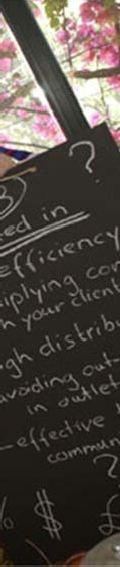 ?
3)
ed in
efficiency
iplying con
h your client
gh distribu
avoiding out-
in outlet
-effective
commun
?
% $ £